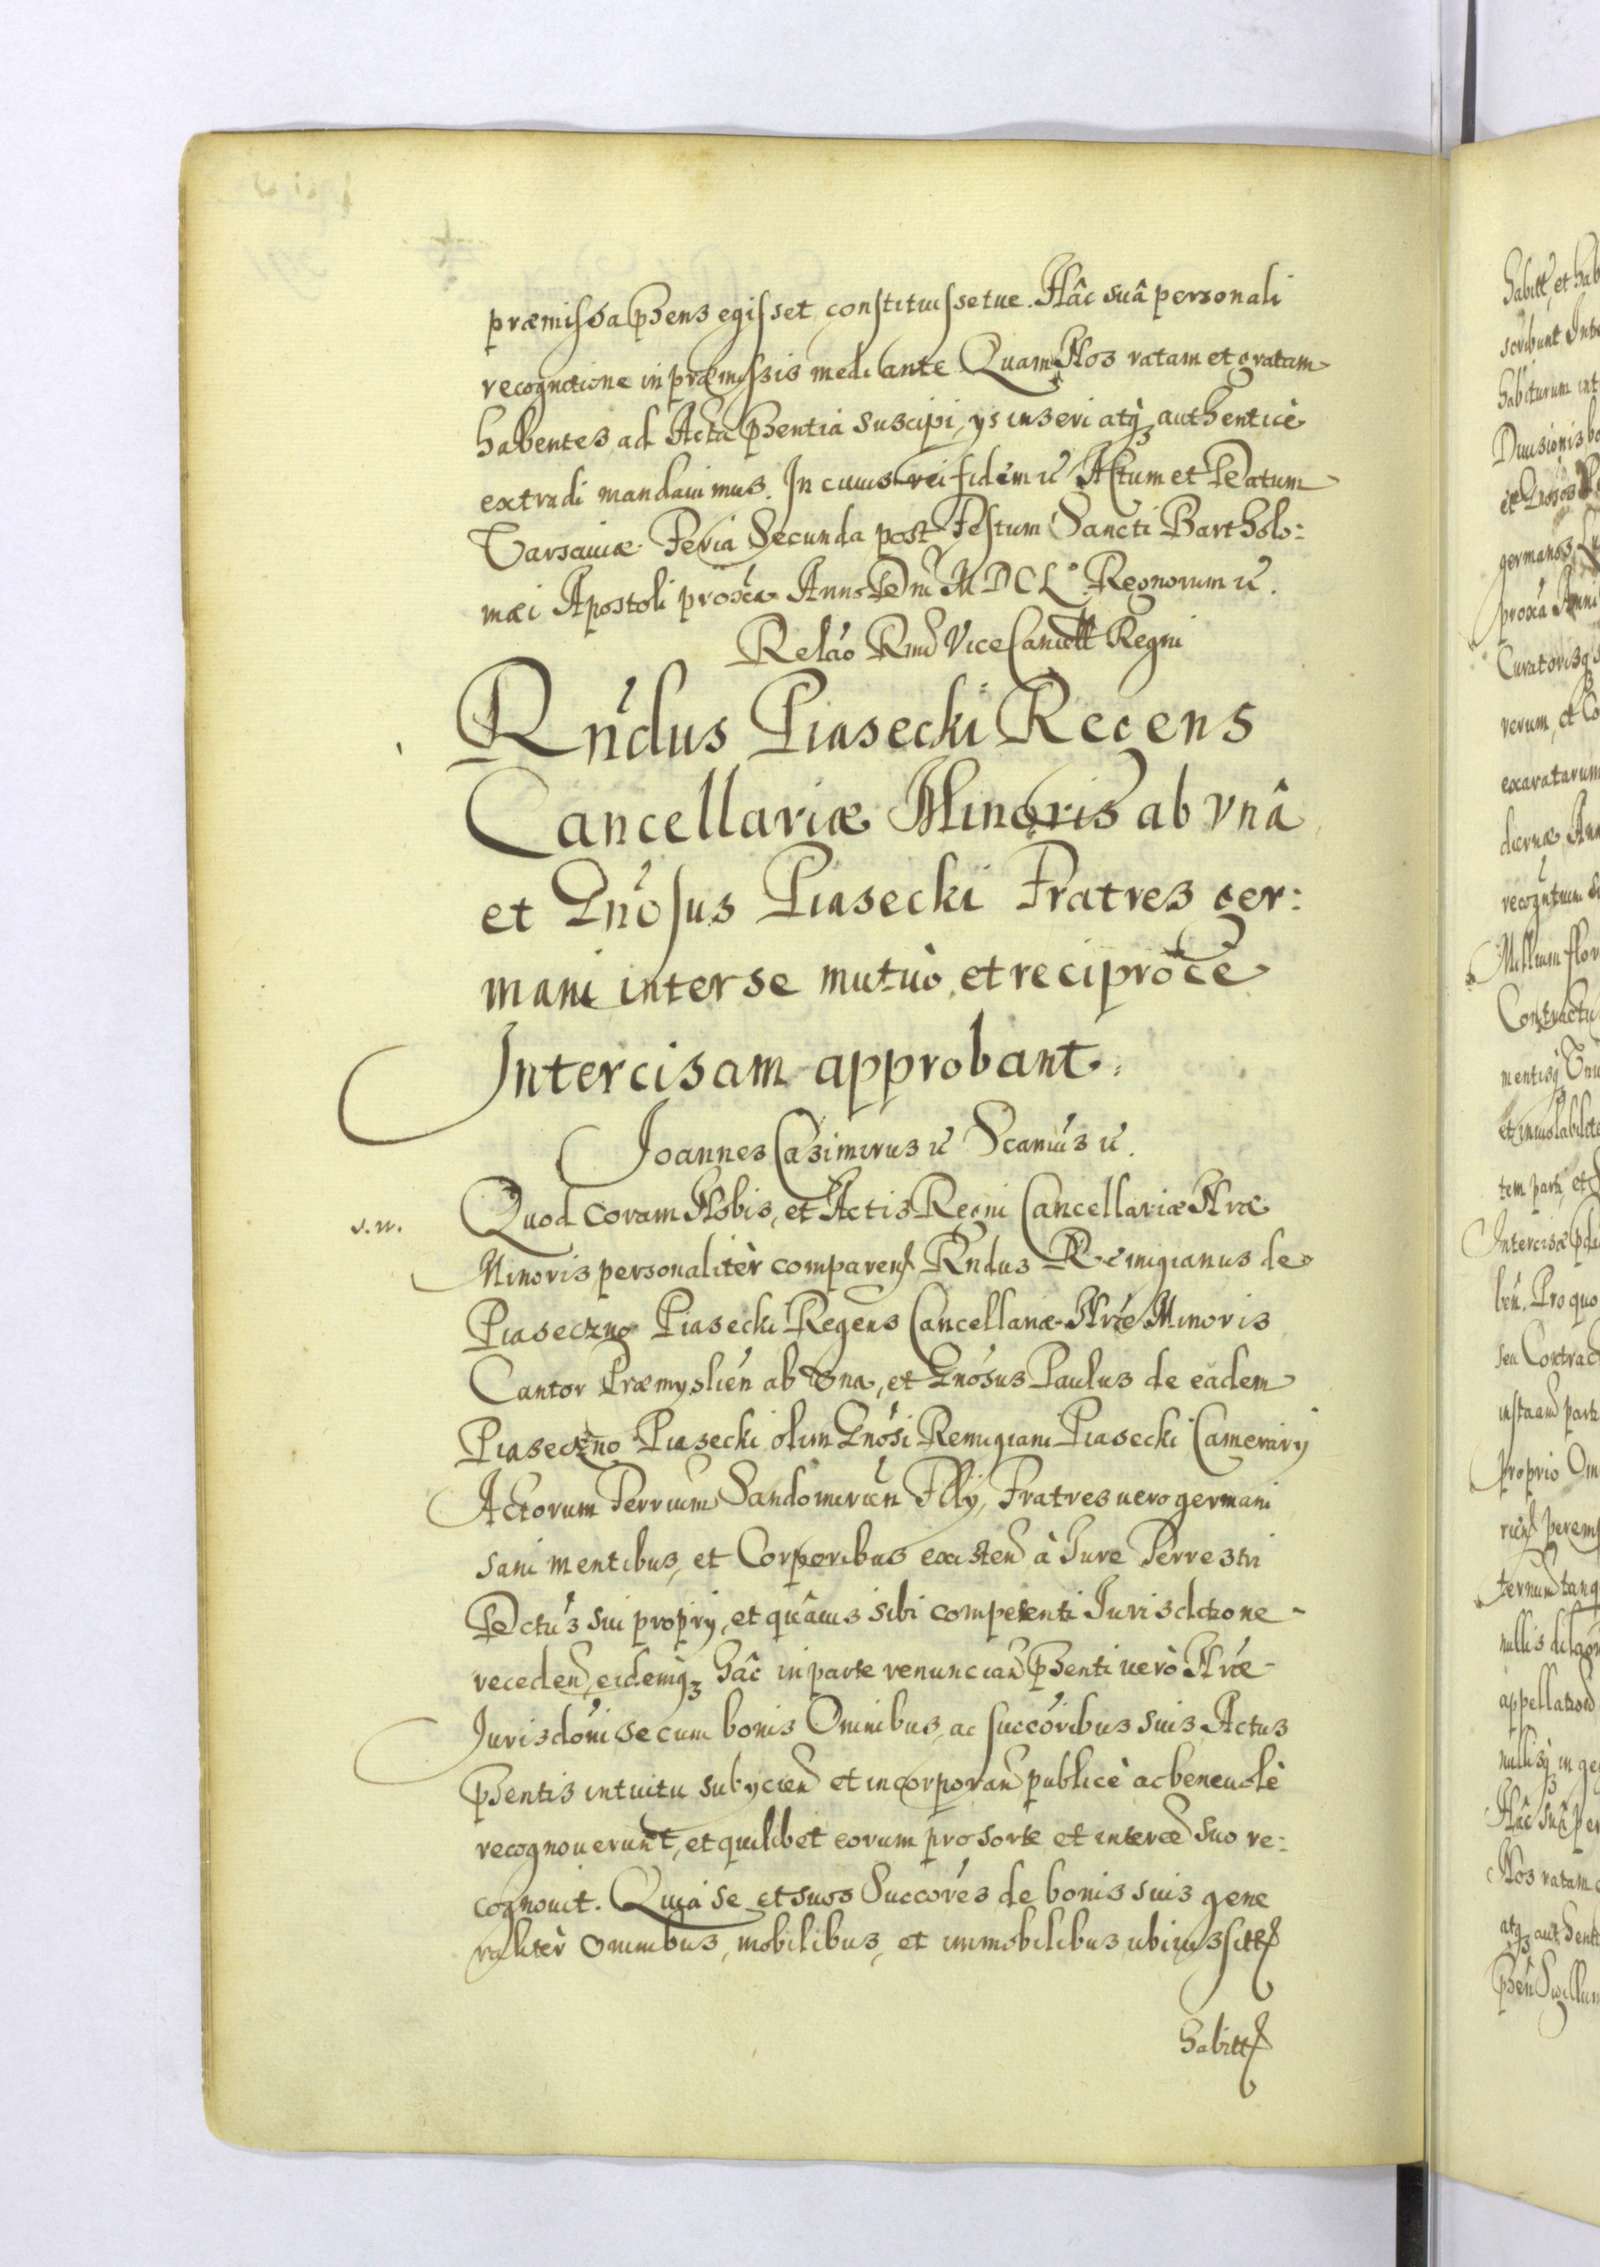 præmissa pħens egisset constituissetue. Hâc suâ personali
recognitione in præmissis mediante Quam Nos ratam et gratam
habentes, ad Acta pħentia suscipi, ys inseri atq₃ authenticè
extradi mandauimus. In cuius rei fidem ꝛc̃ Actum et Datum
Varsauiæ Feria Secunda post Festum Sancti Bartholo:
mæi Apostoli proxa Anno Dni MDCL° Regnorum ꝛc̃.
Relao Rnd ViceCancell Regni
Rńdus Piasecki Regens
Cancellariæ Minoris ab vnâ
et Gnosus Piasecki Fratres ger:
mani inter se mutuò et reciproce
Intercisam approbant.
Joannes Casimirus ꝛc̃ Scamus ꝛc̃.
s. n.
Quod coram Nobis, et Actis Regni Cancellariæ Nræ
Minoris personalitèr comparens Rndus Remigianus de
Piaseczno Piasecki Regens Cancellariæ Nræ Minoris
Cantor Præmyslien ab Vna, et Gnosus Paulus de eadem
Piaseczno Piasecki olim Gnosi Remigiani Piasecki Camerary
Actorum Terrium Sandomirien Filiy, Fratres uero germani
sani mentibus, et Corporibus existen à Iure Terrestri
Dctus sui propry, et quâuis sibi competenti Jurisdctione
receden, eidemq₃ hâc in parte renuncian pħenti uerò Nræ
Jurisdoni se cum bonis Omnibus, ac succoribus suis Actus
pħentis intuitu subycien et incorporan publicè ac beneuolè
recognouerunt, et quilibet eorum pro sorte et interee suo re:
cognouit. Quia se et suos Succores de bonis suis gene
ralitèr omnibus, mobilibus, et immobilibus, ubiuis sitt
habitt
habitt, et hab
scribunt Inte
habiturum int
Diuisionis bo
et Gnosos
germanos
proxa Anni
Curatorisq₃
rerum, et Co
exaratarum
diernæ Ann
recognitum
Millium flor
Contractu
mentisq₃
et inuiolabilite
tem parti, et
Intercisæ
ben. Pro quo
seu Contrac
instaan parti
proprio Om
rien perem
ternum tanq
nullis dilaon
appellaoni
nullisq₃ in ge
Hâc suâ per
Nos ratam
atq₃ authenti
Pħen Sigillum